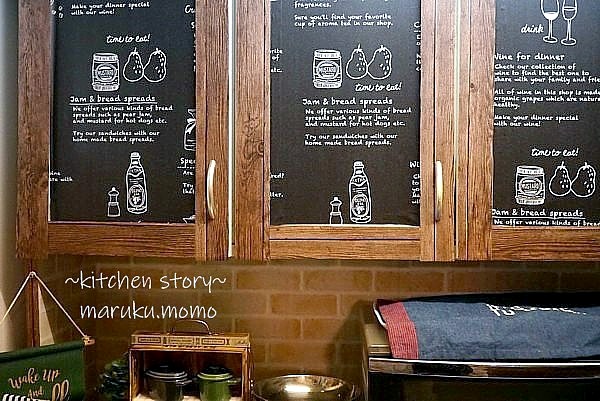 Make your dinner special
with our wine!
time to eat!
MUSTARD
Jam & bread spreads
We offer various kinds of bread
spreads such as pear jam,
and mustard for hot dogs etc.
Try our sandwiches with our
home made bread spreads.
fragrances.
Sure you'll find your favorite
cup of aroma tea in our shop.
time to eat!
MUSTARD
Jam & bread spreads
We offer various kinds of bread
spreads such as pear jam,
and mustard for hot dogs etc.
Try our sandwiches with our
home made bread spreads.
drink
Wine for dinner
Check our collection of
wine to find the best one to
share with your family and
All of wine in this shop is made
organic grapes which are
healthy.
Make your dinner special
with our wine!
time to eat!
MUSTARD
Jam & bread spreads
We offer various kinds of bread
~kitchen story~
maruku.momo
Wake Up
And